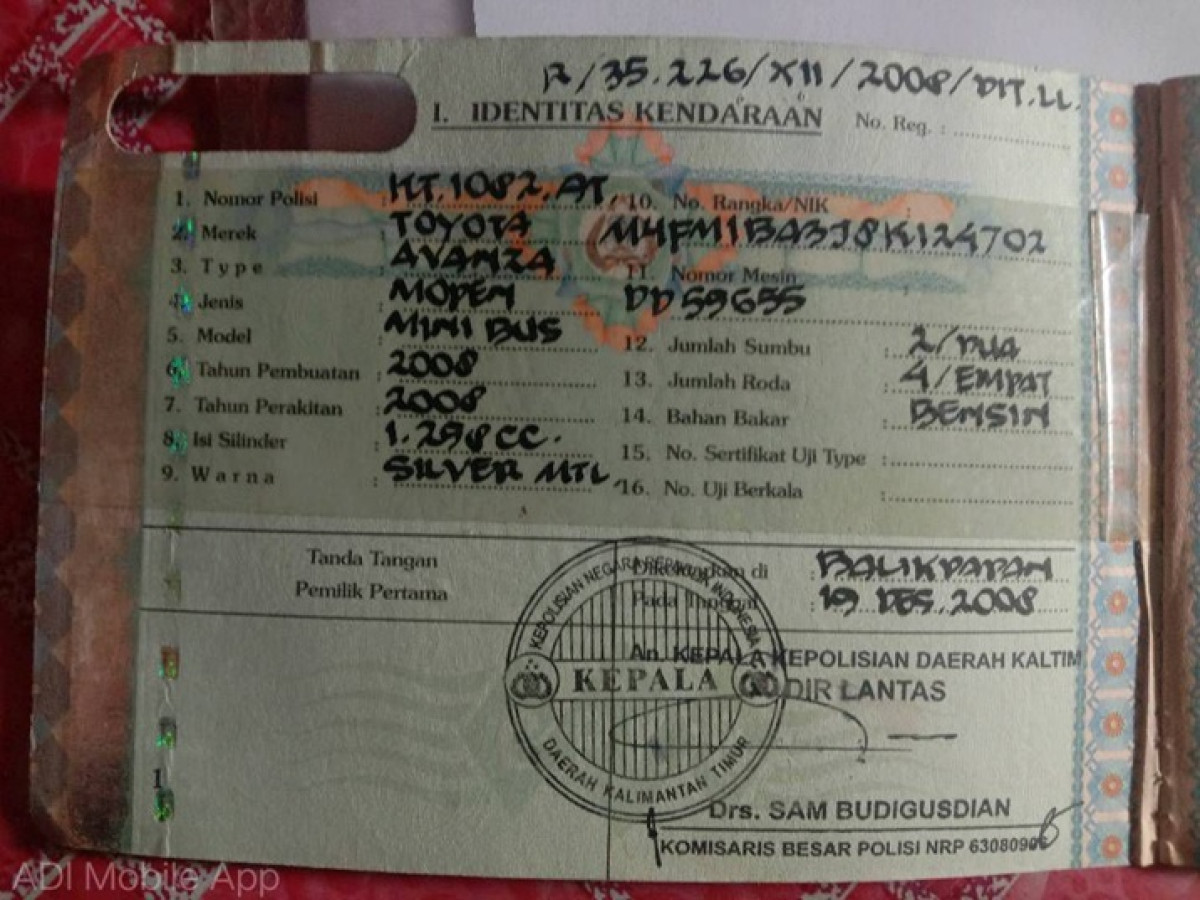 R/35.226/XII/2008/DIT.LL.
I. IDENTITAS KENDARAAN
No. Reg. :
1. Nomor Polisi : KT.1082.AT
2. Merek TOYOTA
3. Type : AVANZA
4. Jenis : MOPEN
5. Model : MINI BUS
6. Tahun Pembuatan : 2008
7. Tahun Perakitan : 2008
8. Isi Silinder : 1.298 CC.
9. Warna : SILVER MTL
10. No. Rangka/NIK :
MHFM1BA3J8K124702
11. Nomor Mesin :
DD59655
12. Jumlah Sumbu : 2/DUA
13. Jumlah Roda : 4/EMPAT
14. Bahan Bakar : BENSIN
15. No. Sertifikat Uji Type :
16. No. Uji Berkala :
Tanda Tangan
Pemilik Pertama
Dikeluarkan di : BALIKPAPAN
Pada Tanggal : 19 DES. 2008
An. KEPALA KEPOLISIAN DAERAH KALTIM
DIR LANTAS
KEPOLISIAN NEGARA REPUBLIK INDONESIA
KEPALA
DAERAH KALIMANTAN TIMUR
Drs. SAM BUDIGUSDIAN
KOMISARIS BESAR POLISI NRP
1
ADI Mobile App